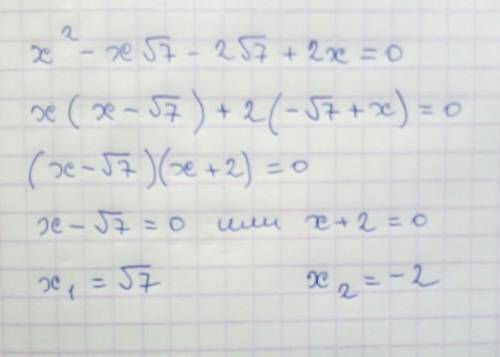 x² - x√7 - 2√7 + 2x = 0
x(x - √7) + 2(-√7 + x) = 0
(x - √7)(x + 2) = 0
x - √7 = 0 или x + 2 = 0
x₁ = √7 x₂ = -2